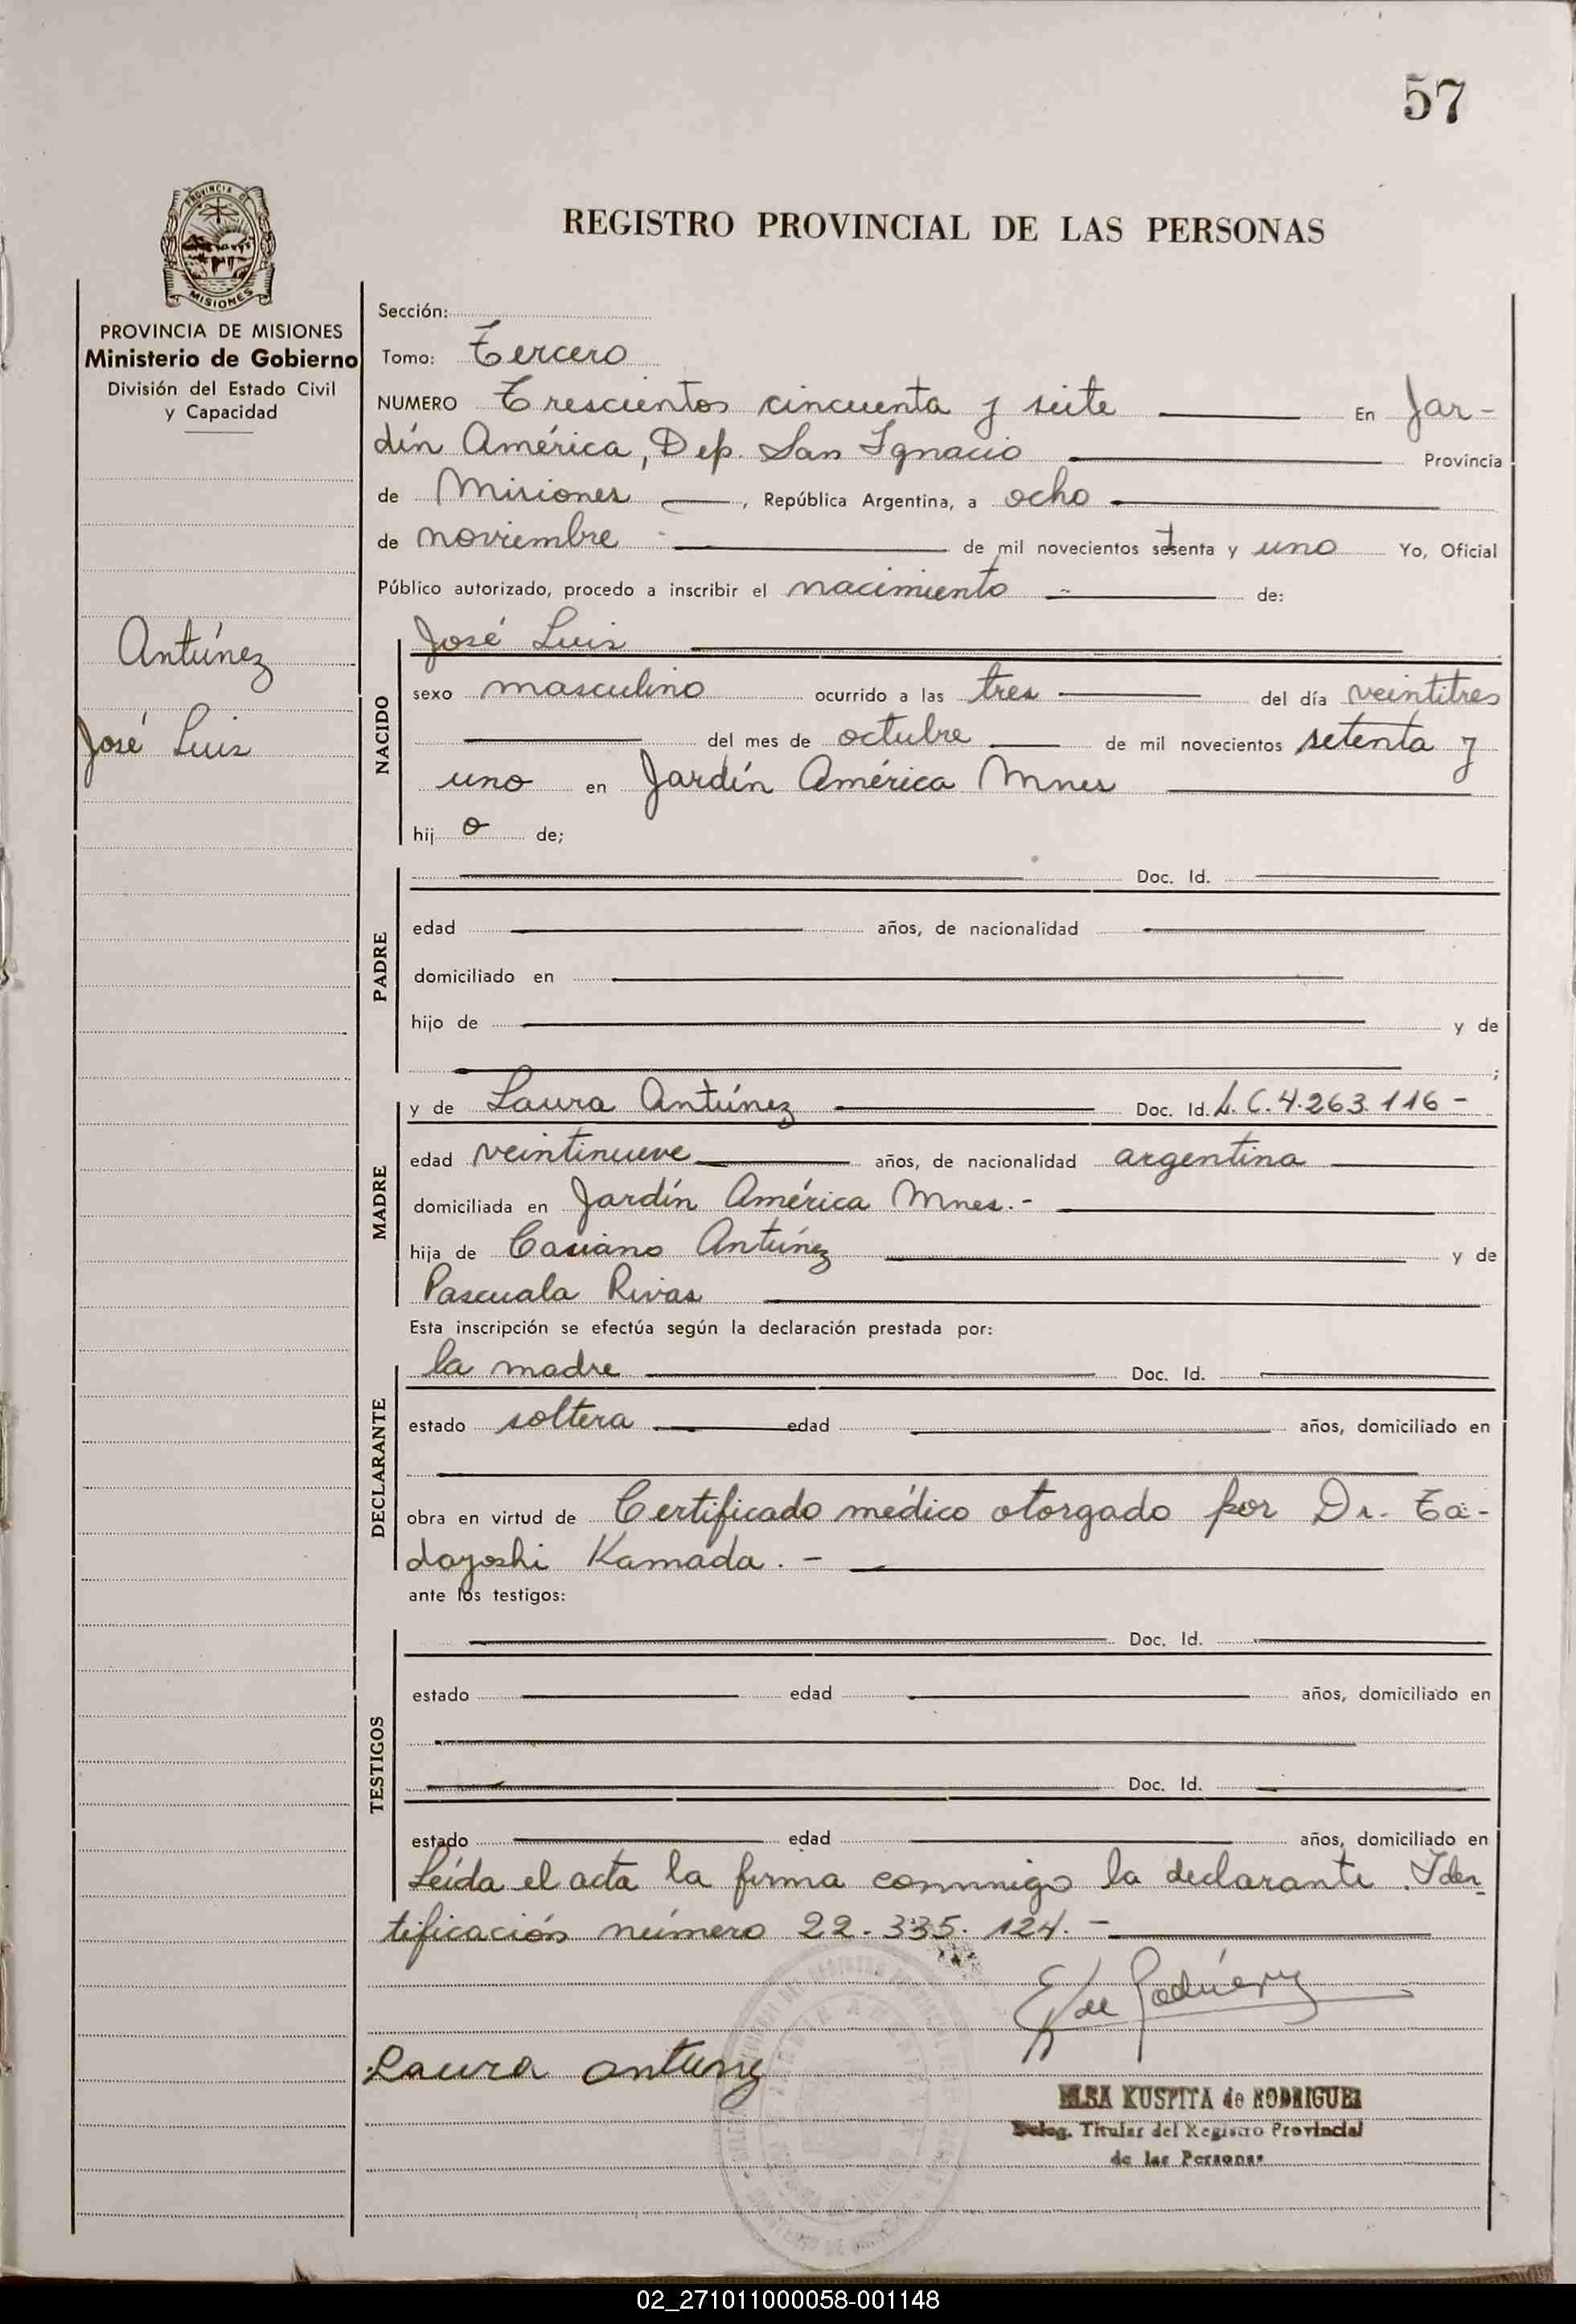 57
REGISTRO PROVINCIAL DE LAS PERSONAS
PROVINCIA DE MISIONES
Ministerio de Gobierno
División del Estado Civil
y Capacidad
Antúnez
José Luis
Sección:
Tomo: Tercero
NUMERO Trescientos cincuenta y seite En Jar-
dín América, Dep. San Ignacio Provincia
de Misiones, República Argentina, a ocho
de noviembre de mil novecientos setenta y uno Yo, Oficial
Público autorizado, procedo a inscribir el nacimiento de:
NACIDO
José Luis
sexo masculino ocurrido a las tres del día veintitres
del mes de octubre de mil novecientos setenta y
uno en Jardín América Mnes
hij o de;
PADRE
Doc. Id.
edad años, de nacionalidad
domiciliado en
hijo de y de
;
MADRE
y de Laura Antúnez Doc. Id. L.C. 4.263.116 -
edad veintinueve años, de nacionalidad argentina
domiciliada en Jardín América Mnes.-
hija de Casiano Antúnez y de
Pascuala Rivas
Esta inscripción se efectúa según la declaración prestada por:
DECLARANTE
la madre Doc. Id.
estado soltera edad años, domiciliado en
obra en virtud de Certificado médico otorgado por Dr. Ta-
dayoshi Kamada. -
ante los testigos:
TESTIGOS
Doc. Id.
estado edad años, domiciliado en
Doc. Id.
estado edad años, domiciliado en
Leída el acta la firma conmigo la declarante. Iden-
tificación número 22.335.124. -
Laura antunez
ELSA KUSPITA de RODRIGUEZ
Deleg. Titular del Registro Provincial
de las Personas
02_271011000058-001148